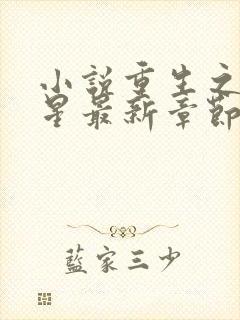 小說重生之
星最新章節
藍家三少